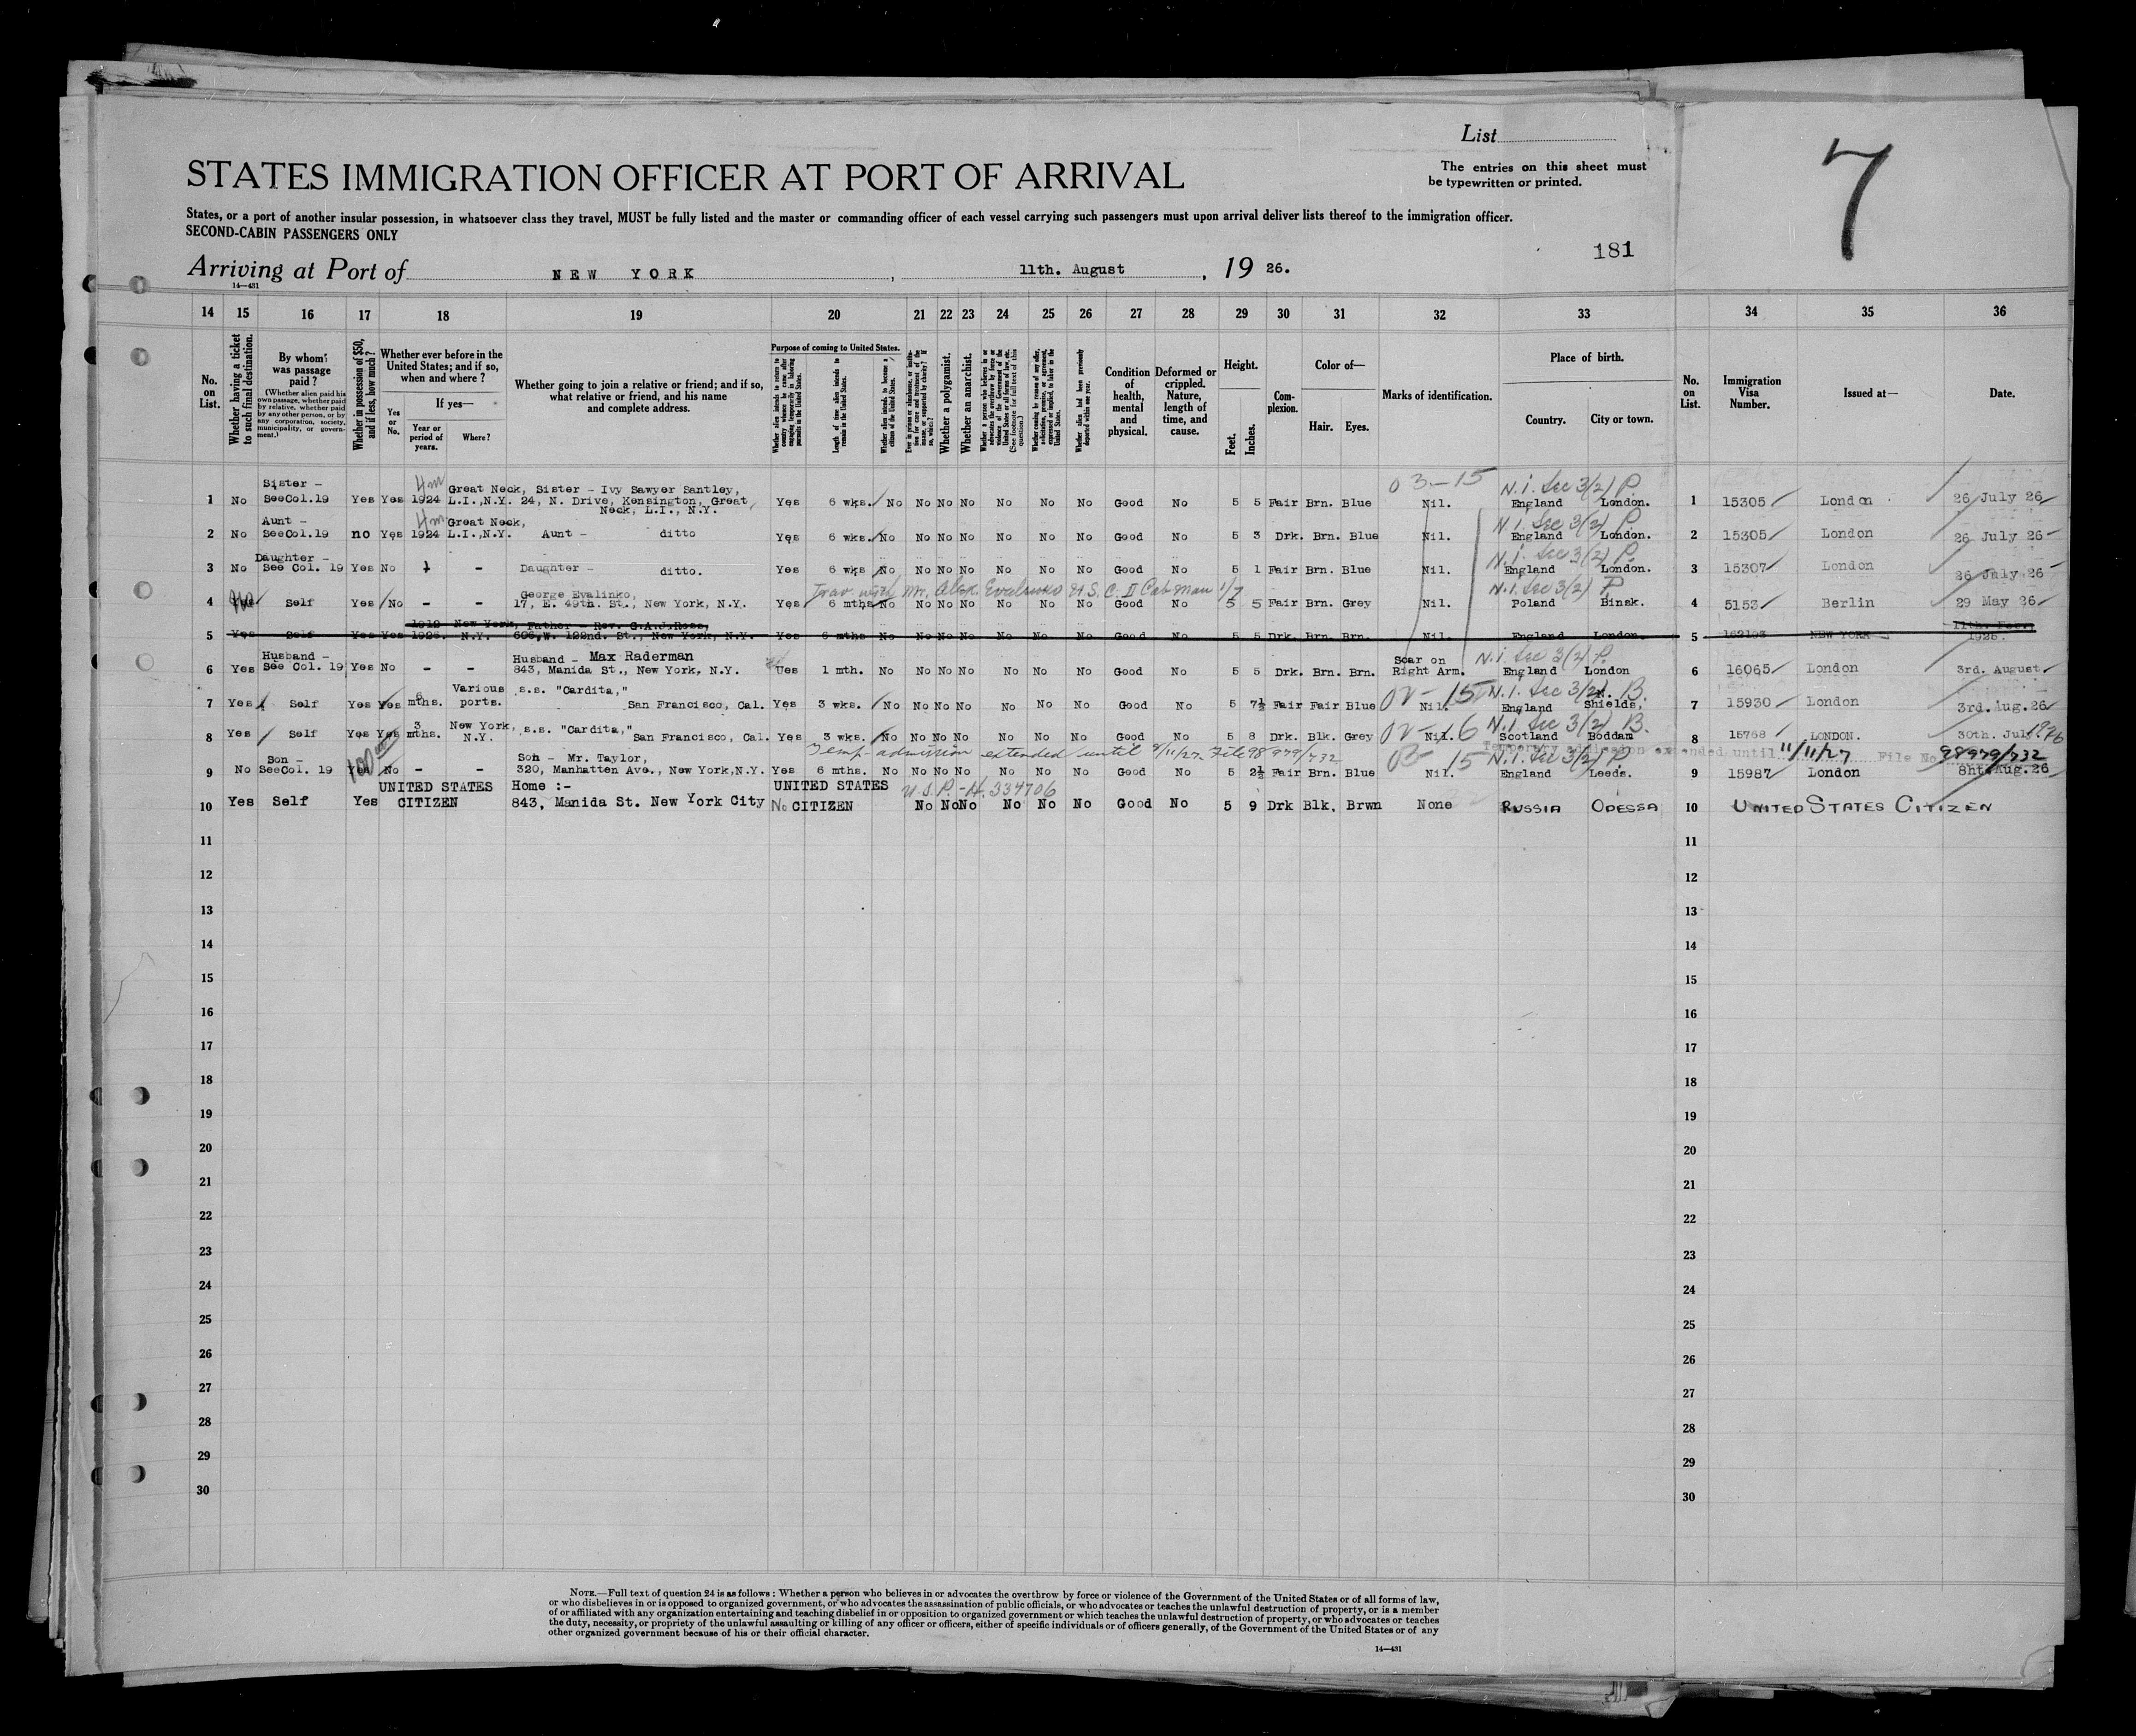 List
The entries on this sheet must
be typewritten or printed.
7
STATES IMMIGRATION OFFICER AT PORT OF ARRIVAL
States, or a port of another insular possession, in whatsoever class they travel, MUST be fully listed and the master or commanding officer of each vessel carrying such passengers must upon arrival deliver lists thereof to the immigration officer.
SECOND-CABIN PASSENGERS ONLY
181
Arriving at Port of NEW YORK, 11th. August, 19 26.
14—431
14 15 16 17 18 19 20 21 22 23 24 25 26 27 28 29 30 31 32 33 34 35 36
No. on List.
Whether having a ticket to such final destination.
By whom was passage paid?
(Whether alien paid his own passage, whether paid by relative, whether paid by any other person, or by any corporation, society, municipality, or government.)
Whether in possession of $50, and if less, how much?
Whether ever before in the United States; and if so, when and where?
Yes or No.
If yes—
Year or period of years.
Where?
Whether going to join a relative or friend; and if so, what relative or friend, and his name and complete address.
Purpose of coming to United States.
Length of time alien intends to remain in the United States.
Whether alien intends to become a citizen of the United States.
Whether a polygamist.
Whether an anarchist.
Condition of health, mental and physical.
Deformed or crippled. Nature, length of time, and cause.
Height.
Feet. Inches.
Complexion.
Color of—
Hair. Eyes.
Marks of identification.
Place of birth.
Country. City or town.
No. on List.
Immigration Visa Number.
Issued at—
Date.
03-15 N.i. Sec 3(2) P.
1 No Sister - SeeCol.19 Yes Yes 4m 1924 Great Neck, L.I.,N.Y. Sister - Ivy Sawyer Santley, 24, N. Drive, Kensington, Great Neck, L.I., N.Y. Yes 6 wks. No No No No No No No Good No 5 5 Fair Brn. Blue Nil. England London. 1 15305 London 26 July 26
N.i. Sec 3(2) P.
2 No Aunt - SeeCol.19 no Yes 4m 1924 Great Neck, L.I.,N.Y. Aunt - ditto Yes 6 wks. No No No No No No No Good No 5 3 Drk. Brn. Blue Nil. England London. 2 15305 London 26 July 26
N.i. Sec 3(2) P.
3 No Daughter - See Col. 19 Yes No - Daughter - ditto. Yes 6 wks No No No No No No No Good No 5 1 Fair Brn. Blue Nil. England London. 3 15307 London 26 July 26
Trav with Mr. Alex. Evalinko U.S.C. II Cab Man 1/7 N.i. Sec 3(2) P.
4 Self Yes No - - George Evalinko, 17, E. 49th. St., New York, N.Y. Yes 6 mths No No No No No No No Good No 5 5 Fair Brn. Grey Nil. Poland Binsk. 4 5153 Berlin 29 May 26
5 Yes Self Yes Yes 1912 1926. New York, N.Y. Father - Rev. G.A.J.Ross, 606,W. 122nd. St., New York, N.Y. Yes 6 mths No No No No No No No Good No 5 5 Drk. Brn. Brn. Nil. England London. 5 NEW YORK 11th. Fec. 1926.
N.i. Sec 3(2) P.
6 Yes Husband - See Col. 19 Yes No - - Husband - Max Raderman 843, Manida St., New York, N.Y. Ues 1 mth. No No No No No No No Good No 5 5 Drk. Brn. Brn. Scar on Right Arm. England London 6 16065 London 3rd. August
N.I. Sec 3(2) B.
7 Yes Self Yes Yes 6 mths. Various ports. s.s. "Cardita," San Francisco, Cal. Yes 3 wks. No No No No No No No Good No 5 7½ Fair Fair Blue Nil. England N. Shields, 7 15930 London 3rd.Aug.26
N.I. Sec 3(2) B.
8 Yes Self Yes Yes 3 mths. New York, N.Y. s.s. "Cardita," San Francisco, Cal. Yes 3 wks. No No No No No No No Good No 5 8 Drk. Blk. Grey Nil. Scotland Boddam 8 15768 LONDON. 30th. July 1926
Temp admission extended until 8/11/27. File 98979/732 Temporary admission extended until 11/11/27 File No. 98979/732
N.I. Sec 3(2) P
9 No Son - SeeCol. 19 100 No - - Son - Mr. Taylor, 320, Manhatten Ave., New York,N.Y. Yes 6 mths. No No No No No No No Good No 5 2½ Fair Brn. Blue Nil. England Leeds. 9 15987 London 8ht.Aug.26
10 Yes Self Yes UNITED STATES CITIZEN Home :- 843, Manida St. New York City No UNITED STATES CITIZEN U.S.P.-H. 334706 No No No No No No Good No 5 9 Drk Blk. Brwn None RUSSIA ODESSA 10 UNITED STATES CITIZEN
11 11
12 12
13 13
14 14
15 15
16 16
17 17
18 18
19 19
20 20
21 21
22 22
23 23
24 24
25 25
26 26
27 27
28 28
29 29
30 30
NOTE.—Full text of question 24 is as follows: Whether a person who believes in or advocates the overthrow by force or violence of the Government of the United States or of all forms of law,
or who disbelieves in or is opposed to organized government, or who advocates the assassination of public officials, or who advocates or teaches the unlawful destruction of property, or is a member
of or affiliated with any organization entertaining and teaching disbelief in or opposition to organized government or which teaches the unlawful destruction of property, or who advocates or teaches
the duty, necessity, or propriety of the unlawful assaulting or killing of any officer or officers, either of specific individuals or of officers generally, of the Government of the United States or of any
other organized government because of his or their official character.
14—431